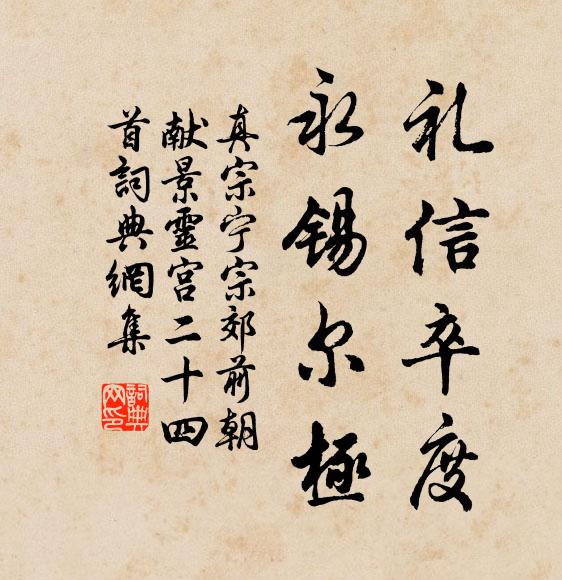 礼信卒度
永锡尔極
真宗宁宗郊前朝
献景靈宫二十四
首詞典網集
詞典网印